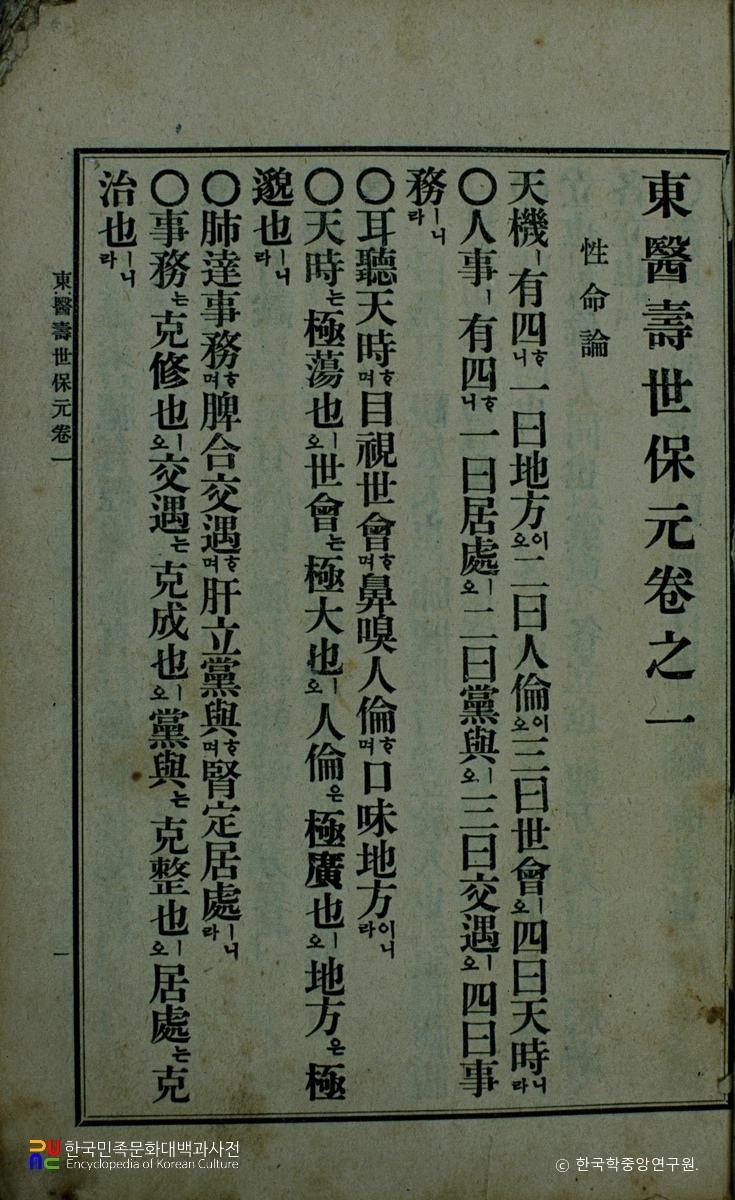 東醫壽世保元卷之一
性命論
天機ㅣ有四ᄒᆞ니一曰地方이오二曰人倫이오三曰世會ㅣ오四曰天時ㅣ니라
〇人事ㅣ有四ᄒᆞ니一曰居處ㅣ오二曰黨與ㅣ오三曰交遇ㅣ오四曰事
務ㅣ니라
〇耳聽天時ᄒᆞ며目視世會ᄒᆞ며鼻嗅人倫ᄒᆞ며口味地方이니라
〇天時는極蕩也ㅣ오世會는極大也ㅣ오人倫은極廣也ㅣ오地方은極
邈也ㅣ니라
〇肺達事務ᄒᆞ며脾合交遇ᄒᆞ며肝立黨與ᄒᆞ며腎定居處ㅣ니라
〇事務는克修也ㅣ오交遇는克成也ㅣ오黨與는克整也ㅣ오居處는克
治也ㅣ니라
東醫壽世保元卷一
一
한국민족문화대백과사전
Encyclopedia of Korean Culture
ⓒ 한국학중앙연구원.